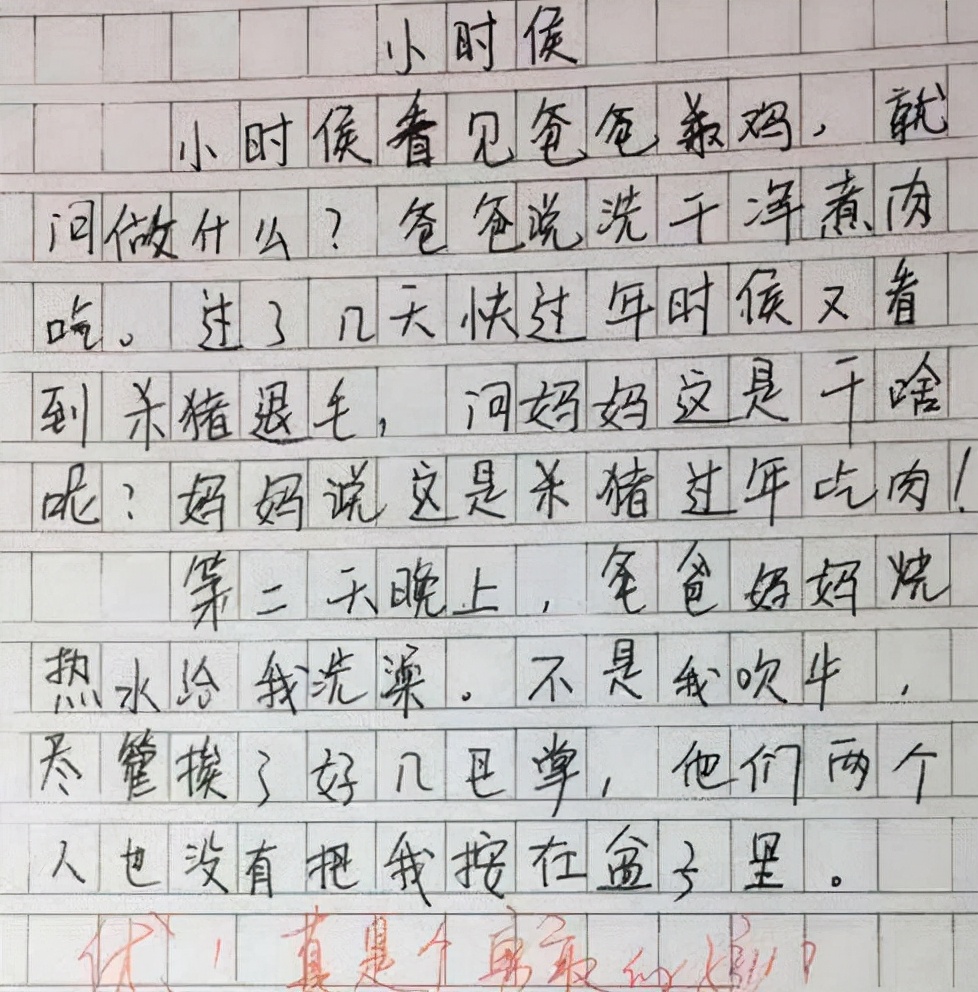 小时侯
小时侯看见爸爸杀鸡，就
问做什么？爸爸说洗干净煮肉
吃。过了几天快过年时侯又看
到杀猪退毛，问妈妈这是干啥
呢？妈妈说这是杀猪过年吃肉！
第二天晚上，爸爸妈妈烧
热水给我洗澡。不是我吹牛，
尽管挨了好几巴掌，他们两个
人也没有把我按在盆子里。
优！真是个勇敢的娃！